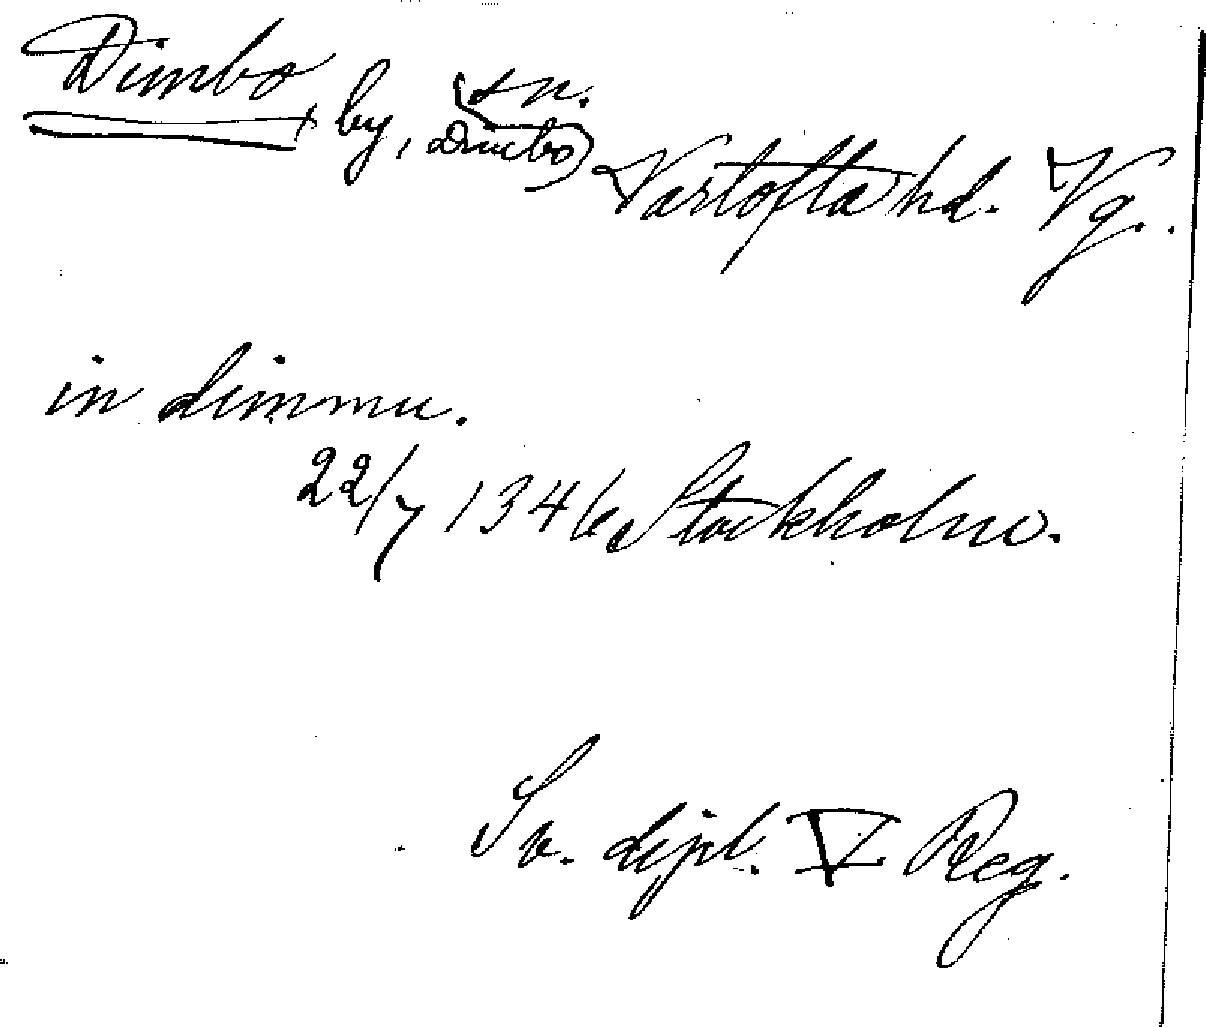 Dimbo, by, Dimbo sn. Vartofta hd. Vg.
in dimmu.
22/7 1346 Stockholm.
Sv. dipl. V Reg.